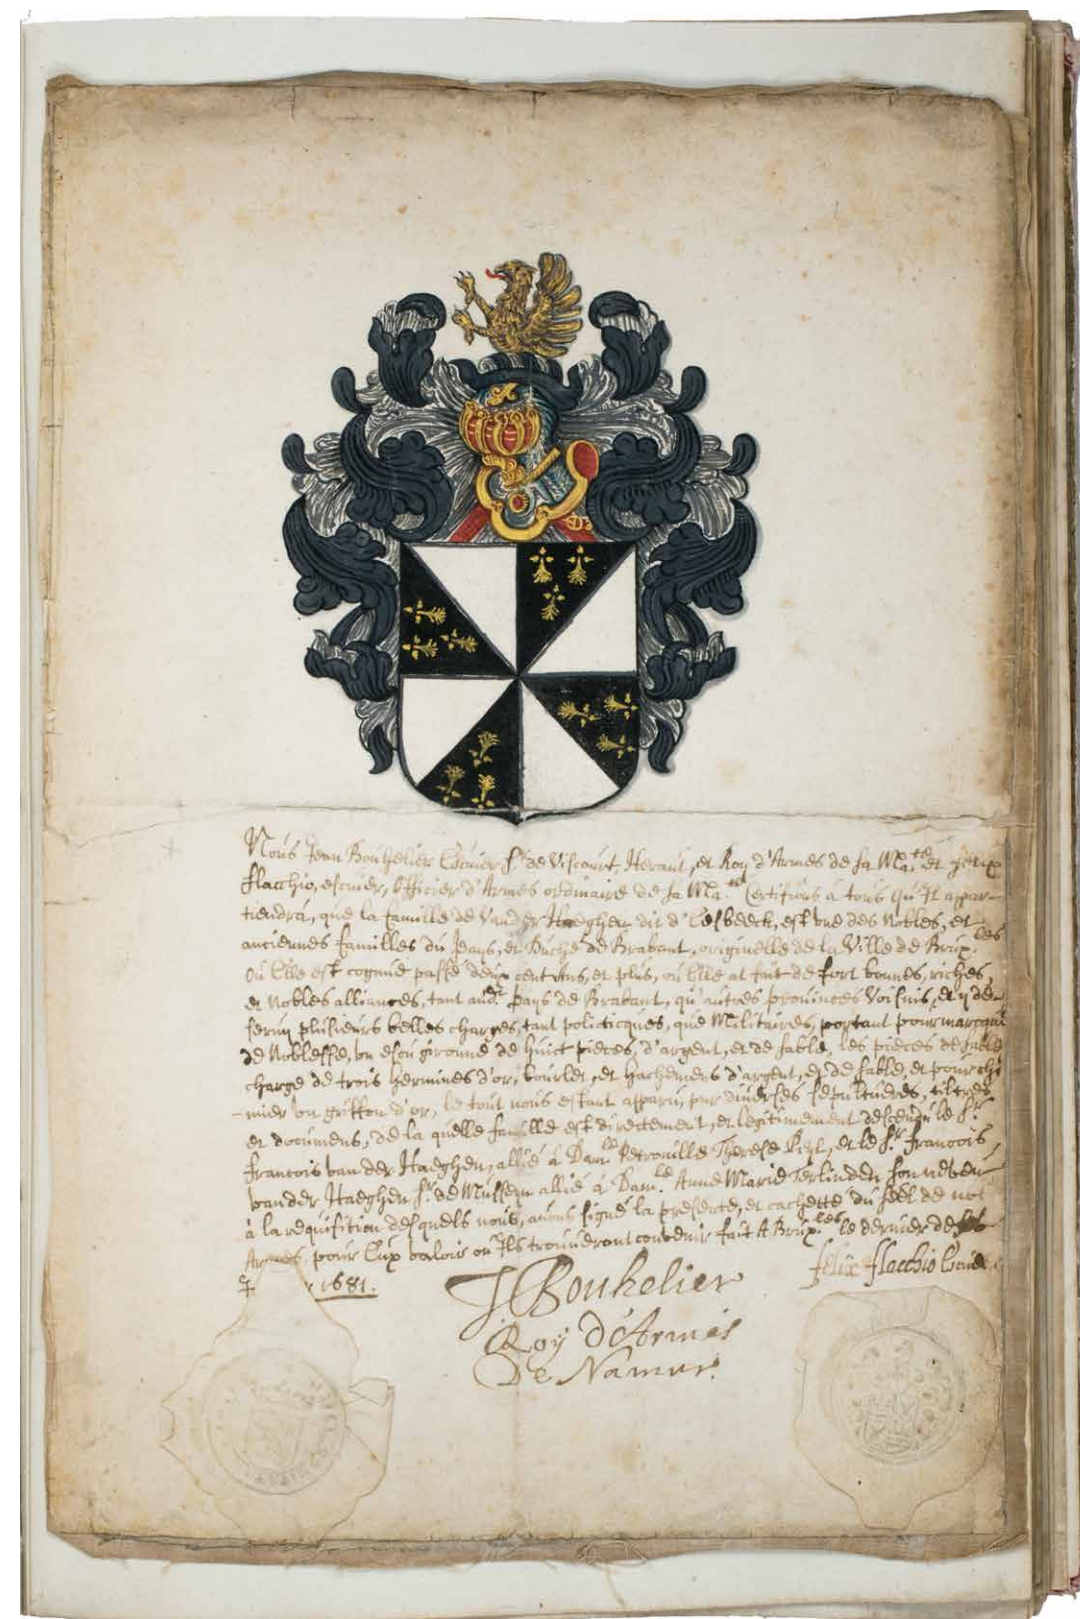 Nous Jean Bouhelier Escuier Sr. de Viscourt, Heraut, et Roy d'Armes de sa Ma.té et
Flacchio, escuier, Officier d'Armes ordinaire de sa Ma.té Certifions à tous qu'Il appar-
tiendra, que la famille de Vander Haeghen dit d'Eesbeeck, est une des Nobles, et
anciennes familles du Pays, et Duché de Brabant, originelle de la Ville de Brux.les
où Elle est cognuë passé deux cent Ans, et plus, où Elle at fait de fort bonnes, riches,
et Nobles alliances, tant audt. Pays de Brabant, qu'autres provinces Voisins, et y des-
seruy plusieurs belles charges, tant politicques, que Militaires, portant pour marcque
de Noblesse, un escu gironné de huict pieces, d'argent, et de sable, les pieces de sable
chargé de trois hermines d'or, bourlet, et hachemens d'argent, et de sable, et pour chi
-mier un griffon d'or, le tout nous estant apparu, par diuerses sepultures, tiltres
et documens, de la quelle famille est directement, et legitimement descendu le Sr.
francois van der Haeghen, allié à Dam.lle Petronille Therese et le Sr. francois
vander Haeghen Sr. de Mussem allié à Dam.le Anne Marie Terlinden son neveu
à la requisition desquels nous, auons signé la presente, et cachetté du séel de noz
Armes, pour Eux valoir où Ils trouueront convenir fait A Brux.les le dernier de
1681.
J Bouhelier
Roy d'Armes
De Namur.
felix flacchio Escuier